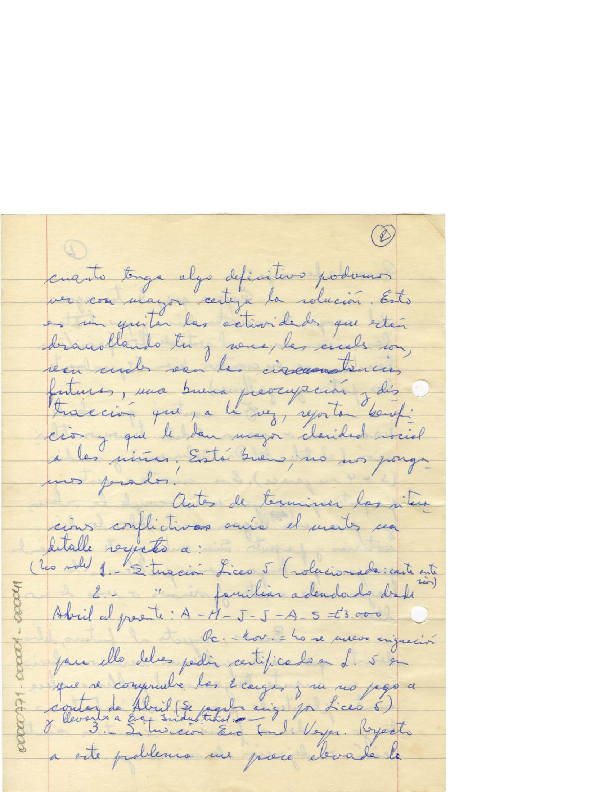 2
cuanto tenga algo definitivo podamos
ver con mayor certeza la solución. Esto
es sin quitar las actividades que están
desarrollando tu y nena, las cuales son,
sean cuales sean las circunstancias
futuras, una buena preocupación y dis-
tracción que, a la vez, reportan benefi-
cios y que le dan mayor claridad social
a las niñas; Está bueno, no nos ponga-
mos pesados.
Antes de terminar las situa-
ciones conflictivas el martes un
detalle respecto a:
1.- Situación Liceo 5 (solucionada: carta ante
rior)
2.- " familiar adeudado desde
Abril al presente: A - M - J - J - A - S =
Oc. - Nov. = no se nueva asignación
para ello debes pedir certificado en L. 5 en
que se compruebe las 2 cargas y su no pago a
contar de Abril (Se pagaba asig. por Liceo 5)
y llevarlo a Esc. Industrial.
3.- Situación Esc. Ind. Vesp. Respecto
a este problema me parece elevada la
00000771 - 000001 - 000041